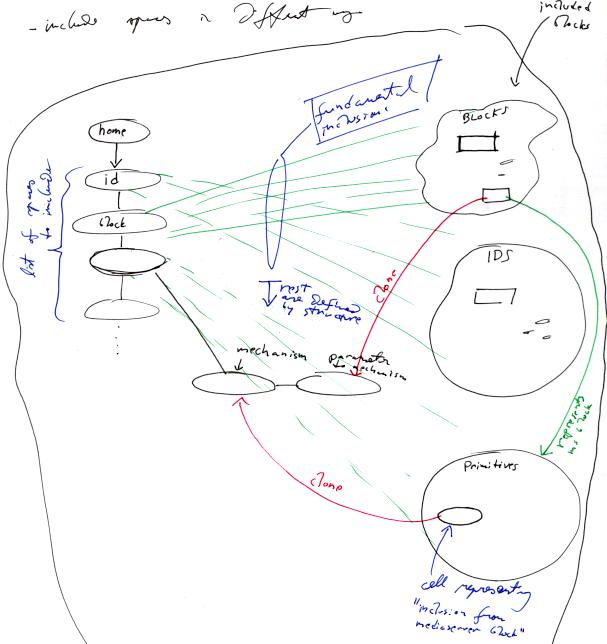 - include spaces in different
included
blocks
home
id
block
list of spaces
to include
fundamental
inclusions
rest
are defined
by structure
BLOCKS
IDS
clone
mechanism
parameter
to mechanism
clone
Primitives
cell representing
"inclusion from
mediaserver block"